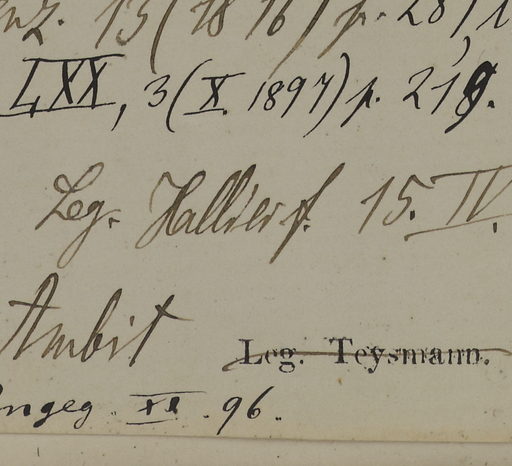 13 (1876) p. 28
LXX, 3 (X. 1897) p. 219.
Leg. Hallier f. 15. IV.
Ambit
Leg. Teysmann.
ngeg. XI. 96.